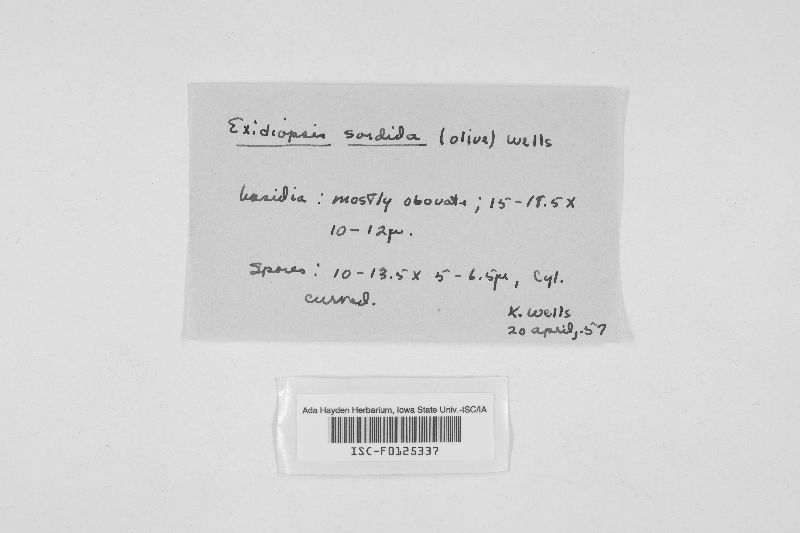 Exidiopsis sordida (olive) Wells
basidia : mostly obovate ; 15-18.5 x
10-12µ.
Spores : 10-13.5 x 5-6.5µ, Cyl.
curved.
K. Wells
20 april, 57
Ada Hayden Herbarium, Iowa State Univ.-ISC/IA
ISC-F0125337